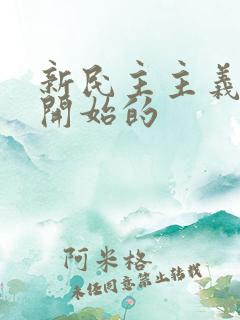 新民主主義
開始的
阿米格
未经同意禁止转载